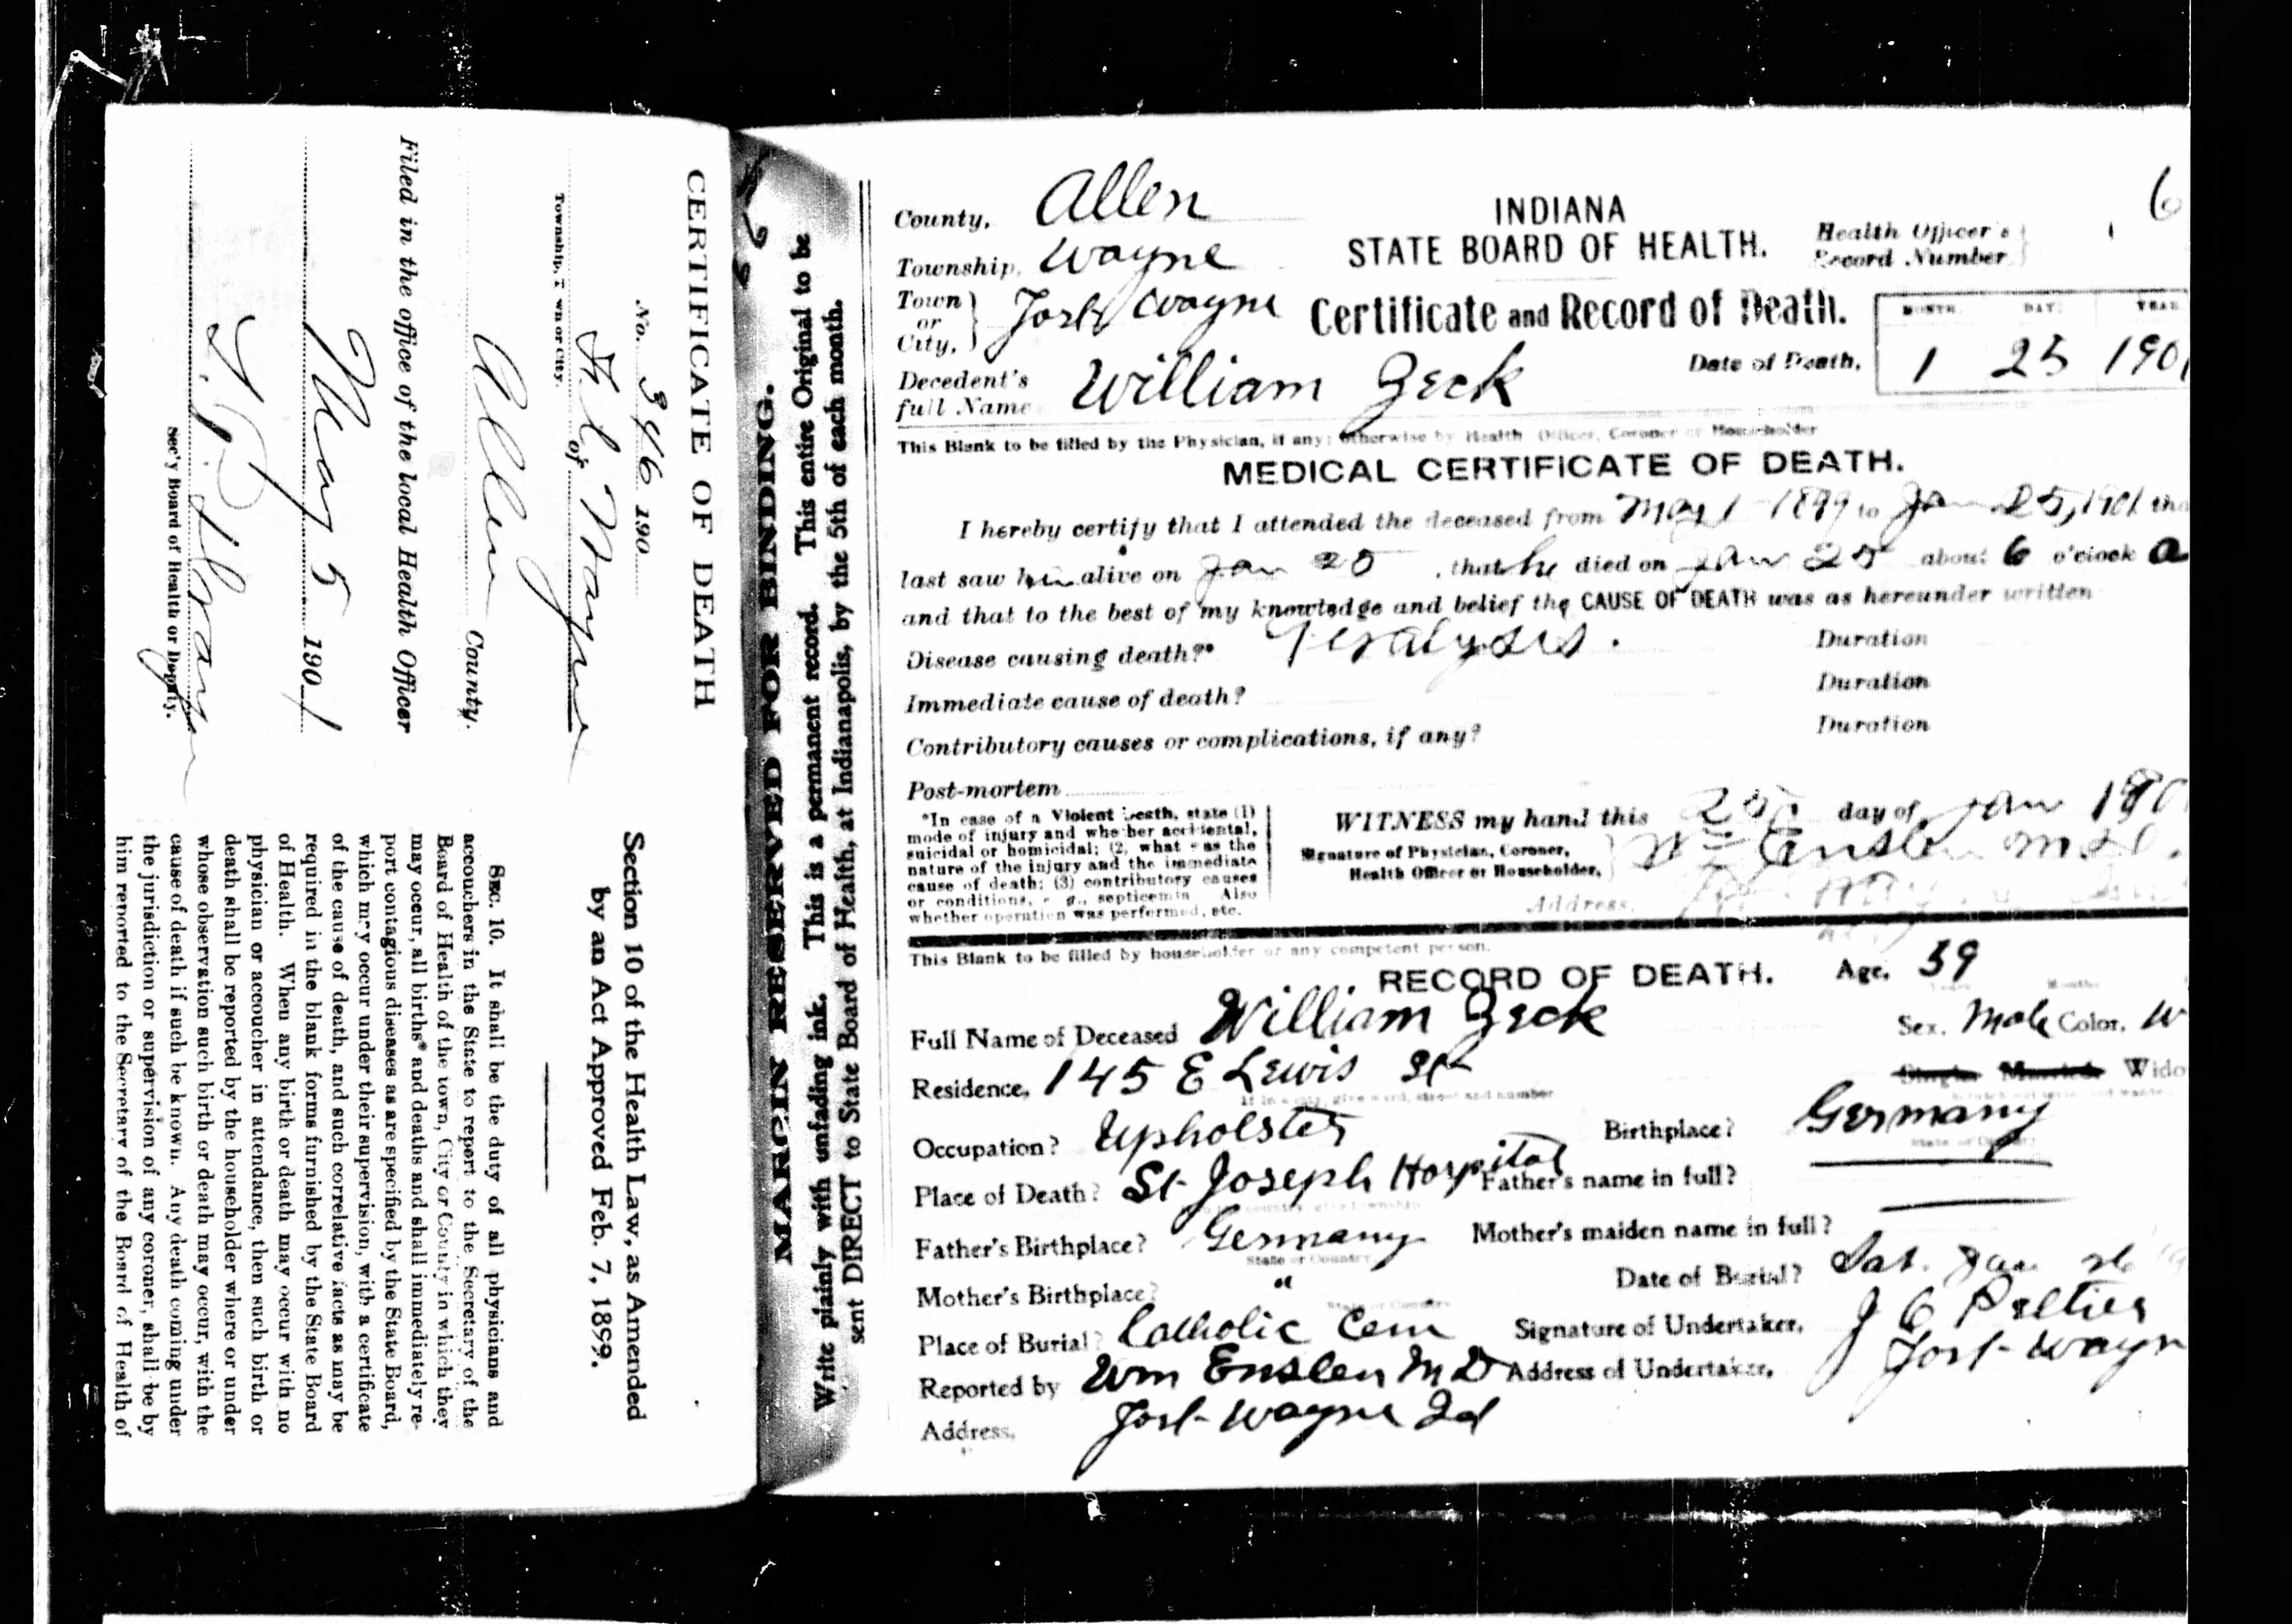 CERTIFICATE OF DEATH
No. 346 190
Ft. Wayne
Township, Town or City. of
Allen County.
Filed in the office of the local Health Officer
May 5 1901
Sec'y Board of Health or Deputy.
Section 10 of the Health Law, as Amended
by an Act Approved Feb. 7, 1899.
SEC. 10. It shall be the duty of all physicians and
accouchers in the State to report to the Secretary of the
Board of Health of the town, City or County in which they
may occur, all births* and deaths and shall immediately re-
port contagious diseases as are specified by the State Board,
which may occur under their supervision, with a certificate
of the cause of death, and such correlative facts as may be
required in the blank forms furnished by the State Board
of Health. When any birth or death may occur with no
physician or accoucher in attendance, then such birth or
death shall be reported by the householder where or under
whose observation such birth or death may occur, with the
cause of death if such be known. Any death coming under
the jurisdiction or supervision of any coroner, shall be by
him reported to the Secretary of the Board of Health of
MARGIN RESERVED FOR BINDING.
Write plainly with unfading ink. This is a permanent record. This entire Original to be
sent DIRECT to State Board of Health, at Indianapolis, by the 5th of each month.
County, Allen
INDIANA
STATE BOARD OF HEALTH.
Health Officer's
Record Number
6
Township, Wayne
Town or City, Fort Wayne
Certificate and Record of Death.
MONTH. DAY. YEAR
Date of Death, 1 25 1901
Decedent's full Name William Zeck
This Blank to be filled by the Physician, if any; otherwise by Health Officer, Coroner or Householder
MEDICAL CERTIFICATE OF DEATH.
I hereby certify that I attended the deceased from May 1 1899 to Jan 25, 1901 tha
last saw him alive on Jan 25, that he died on Jan 25 about 6 o'clock a
and that to the best of my knowledge and belief the CAUSE OF DEATH was as hereunder written
Disease causing death?* Paralysis. Duration
Immediate cause of death? Duration
Contributory causes or complications, if any? Duration
Post-mortem
*In case of a Violent Death, state (1)
mode of injury and whether accidental,
suicidal or homicidal; (2) what was the
nature of the injury and the immediate
cause of death; (3) contributory causes
or conditions, e. g., septicemia Also
whether operation was performed, etc.
WITNESS my hand this 25 day of Jan 190
Signature of Physician, Coroner,
Health Officer or Householder, Wm Enslen M.D.
Address,
This Blank to be filled by householder or any competent person.
RECORD OF DEATH. Age, 59
Years Months
Full Name of Deceased William Zeck Sex, Male Color, W
Residence, 145 E Lewis St Single Married Wido
If in a city, give ward, street and number
Occupation? Upholster Birthplace? Germany
State or Country
Place of Death? St Joseph Hospital Father's name in full?
Father's Birthplace? Germany Mother's maiden name in full?
State or Country
Mother's Birthplace? " Date of Burial? Sat. Jan 26
State or Country
Place of Burial? Catholic Cem Signature of Undertaker, J C Peltier
Reported by Wm Enslen M D Address of Undertaker, Fort Wayn
Address, Fort Wayne Ind